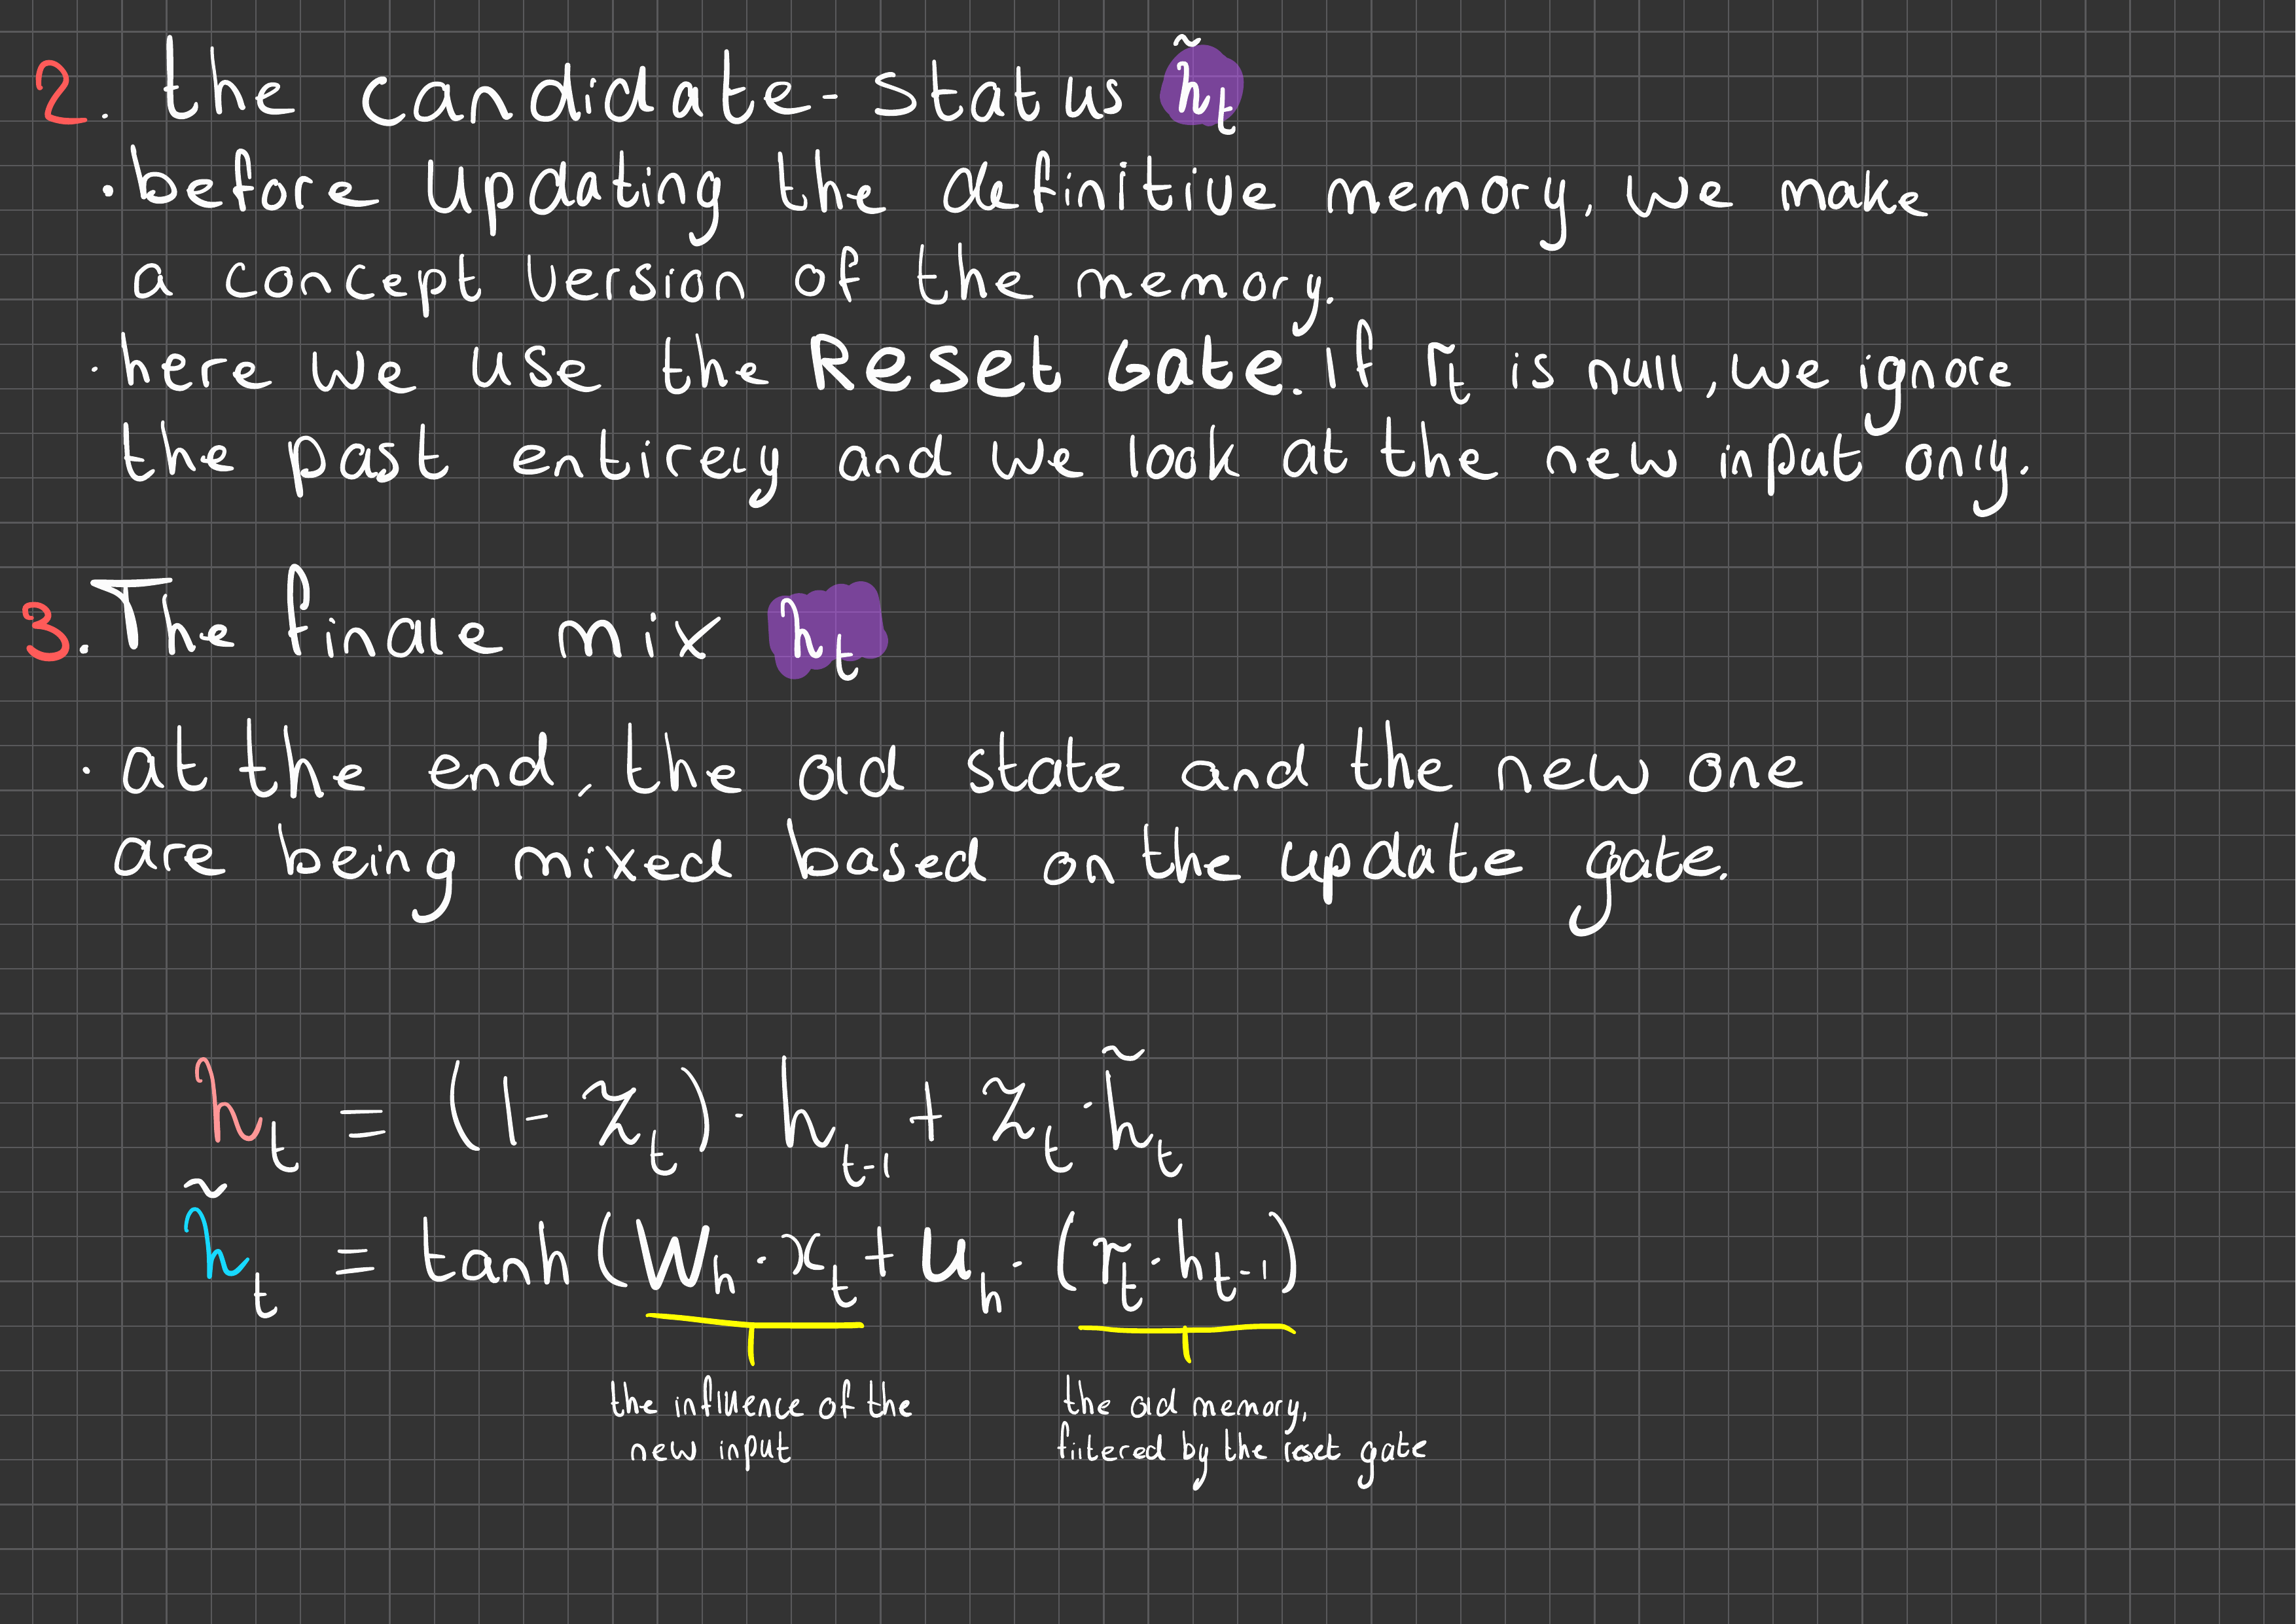 2. the candidate-status h̃t
· before updating the definitive memory, we make
a concept version of the memory.
· here we use the Reset Gate. If rt is null, we ignore
the past entirely and we look at the new input only.
3. The finale mix ht
· at the end, the old state and the new one
are being mixed based on the update gate.
ht = (1 - zt) · ht-1 + zt · h̃t
h̃t = tanh (Wh · xt + Uh · (rt · ht-1)
the influence of the
new input
the old memory,
filtered by the reset gate